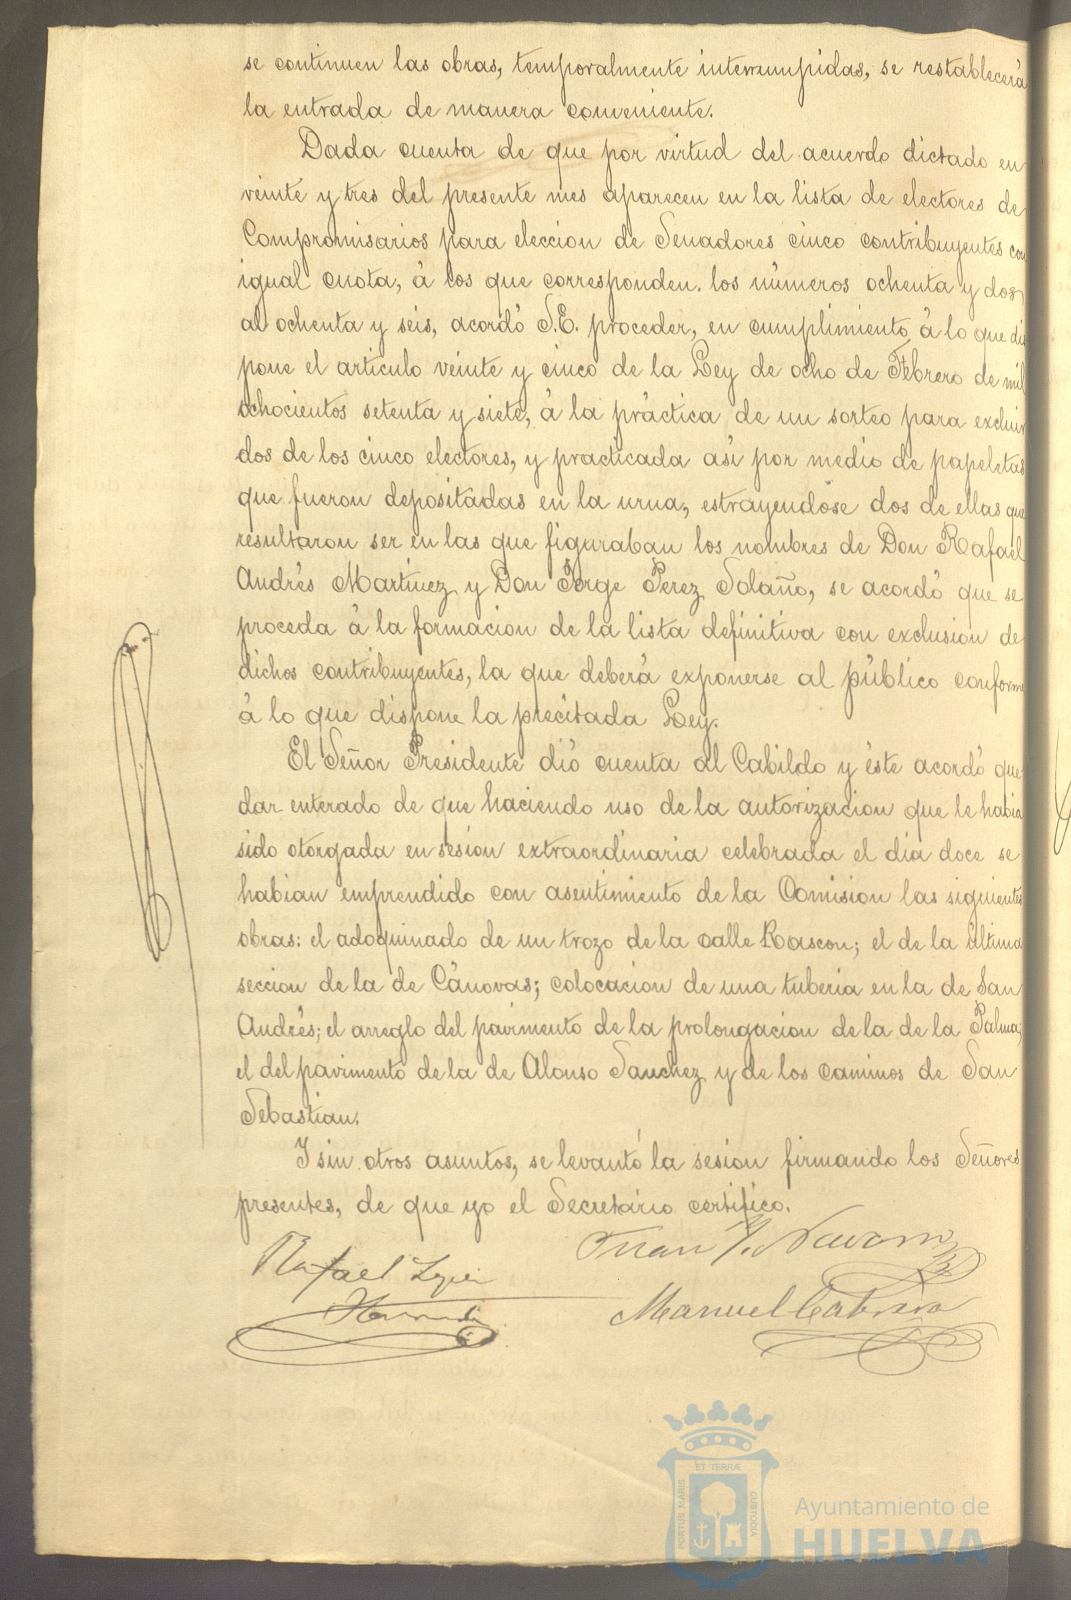 se continuen las obras, temporalmente interrumpidas, se restablecerá
la entrada de manera conveniente.
Dada cuenta de que por virtud del acuerdo dictado en
veinte y tres del presente mes aparecen en la lista de electores de
Compromisarios para eleccion de Senadores cinco contribuyentes con
igual cuota, á los que corresponden los números ochenta y dos
al ochenta y seis, acordó S.E. proceder, en cumplimiento á lo que dis
pone el articulo veinte y cinco de la Ley de ocho de Febrero de mil
ochocientos setenta y siete, á la práctica de un sorteo para excluir
dos de los cinco electores, y practicada asi por medio de papeletas
que fueron depositadas en la urna, estrayendose dos de ellas que
resultaron ser en las que figuraban los nombres de Don Rafael
Andrés Martinez y Don Jorge Perez Solaño, se acordó que se
proceda á la formacion de la lista definitiva con exclusion de
dichos contribuyentes, la que deberá exponerse al público conforme
á lo que dispone la precitada Ley.
El Señor Presidente dió cuenta al Cabildo y éste acordó que
dar enterado de que haciendo uso de la autorizacion que le habia
sido otorgada en sesion extraordinaria celebrada el dia doce se
habian emprendido con asentimiento de la Comision las siguientes
obras: el adoquinado de un trozo de la calle Rascon; el de la última
seccion de la de Cánovas; colocacion de una tuberia en la de San
Andrés; el arreglo del pavimento de la prolongacion de la de la Palma;
el del pavimento de la de Alonso Sanchez y de los caminos de San
Sebastian.
Y sin otros asuntos, se levantó la sesion firmando los Señores
presentes, de que yo el Secretario certifico.
Juan J. Navarro
Rafael Lopez
Hernandez
Manuel Cabrera
ET TERRÆ
PORTUS MARIS
CUSTODIA
Ayuntamiento de
HUELVA